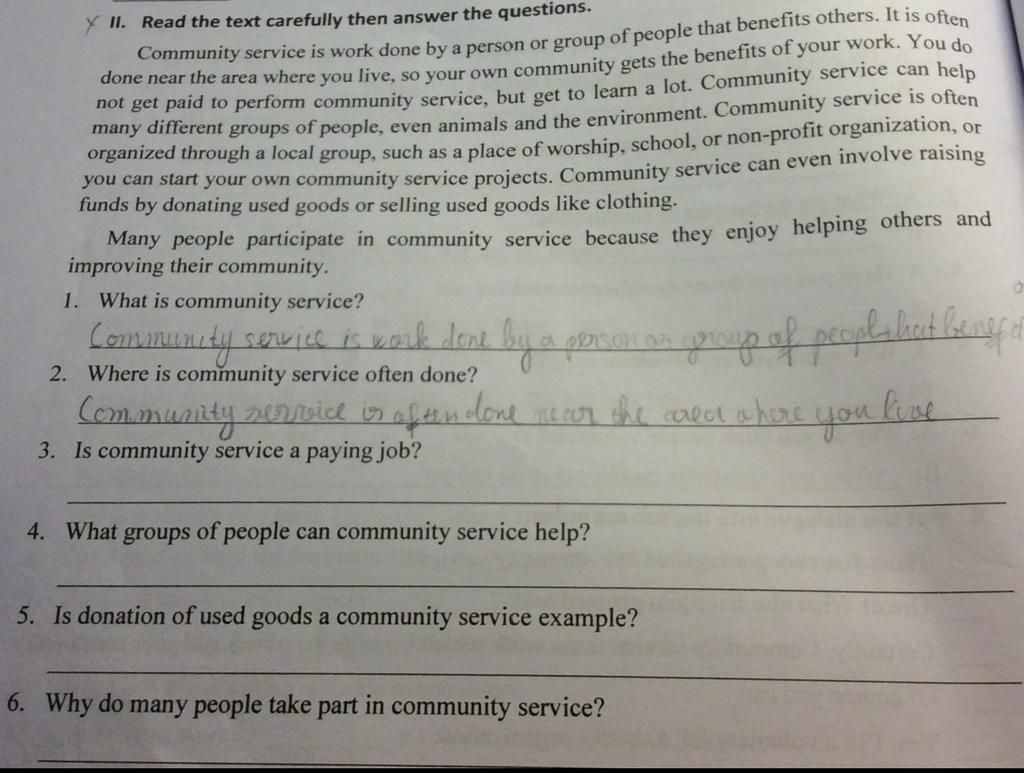 II. Read the text carefully then answer the questions.
Community service is work done by a person or group of people that benefits others. It is often
done near the area where you live, so your own community gets the benefits of your work. You do
not get paid to perform community service, but get to learn a lot. Community service can help
many different groups of people, even animals and the environment. Community service is often
organized through a local group, such as a place of worship, school, or non-profit organization, or
you can start your own community service projects. Community service can even involve raising
funds by donating used goods or selling used goods like clothing.
Many people participate in community service because they enjoy helping others and
improving their community.
1. What is community service?
Community service is work done by a person or group of people that
2. Where is community service often done?
Community service is often done near the area where you live
3. Is community service a paying job?
4. What groups of people can community service help?
5. Is donation of used goods a community service example?
6. Why do many people take part in community service?